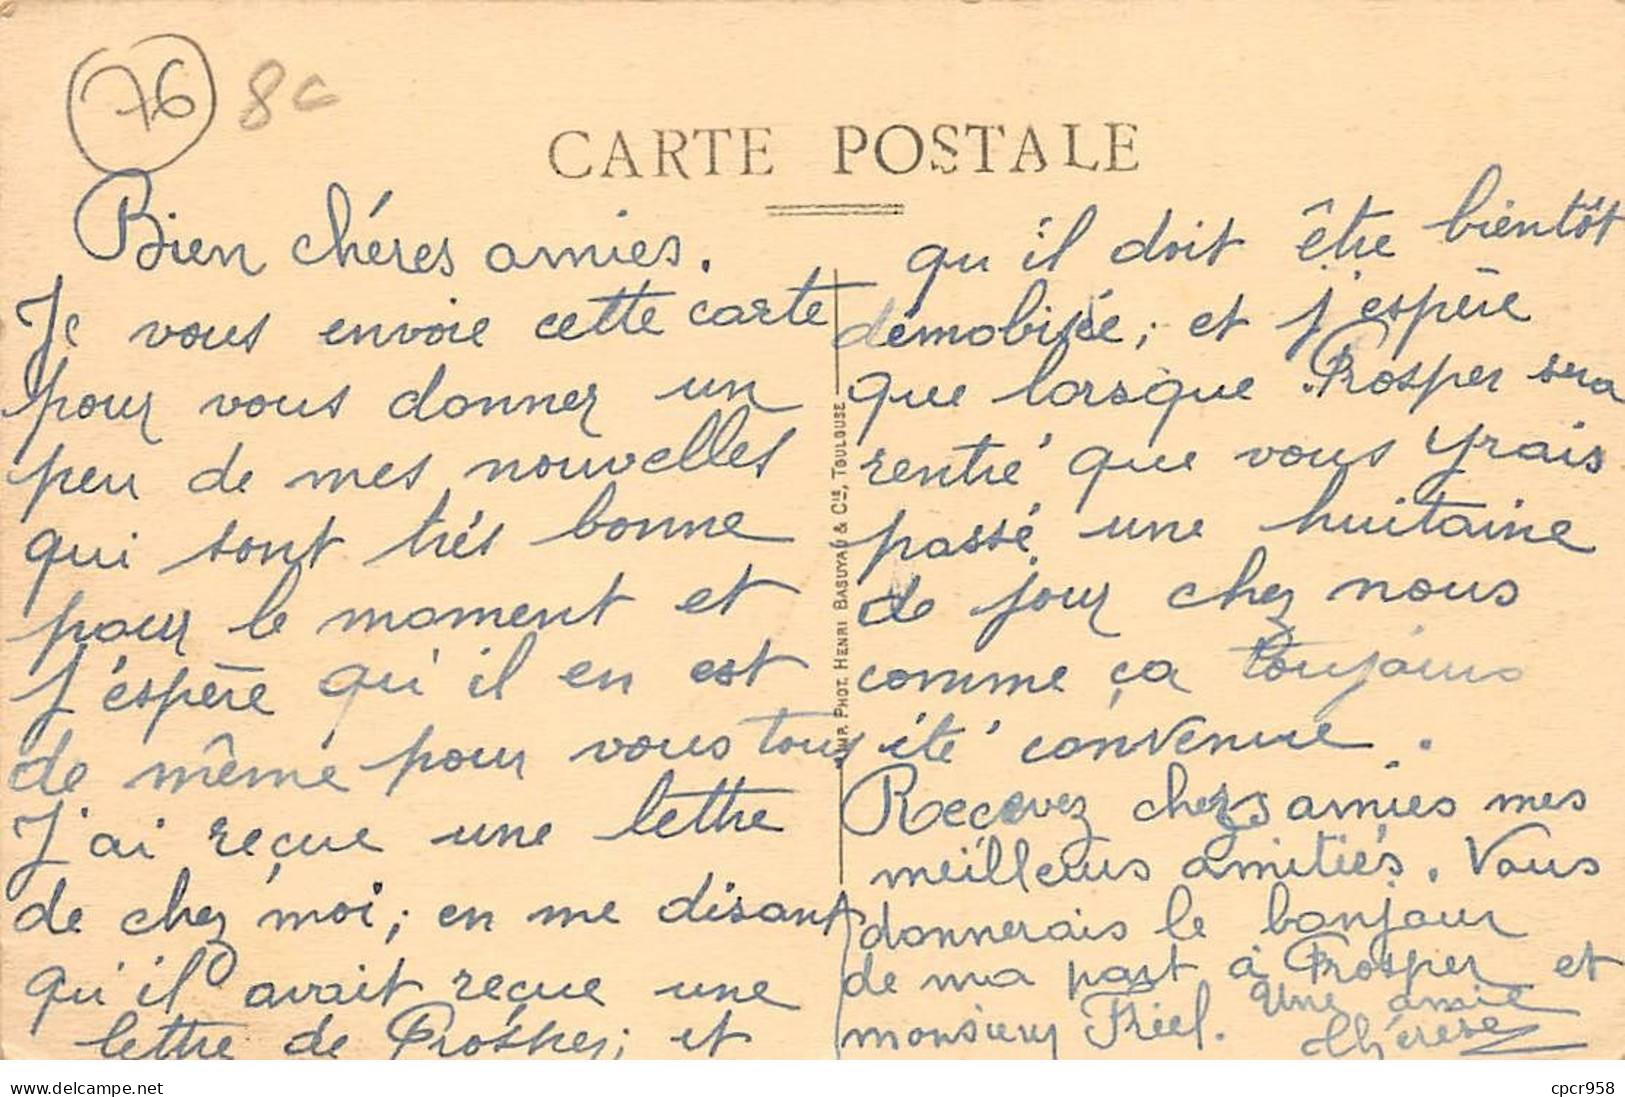 76 8c
CARTE POSTALE
Bien chéres amies.
Je vous envoie cette carte
pour vous donner un
peu de mes nouvelles
qui sont trés bonne
pour le moment et
j'espère qu'il en est
de même pour vous tous
J'ai reçue une lettre
de chez moi; en me disant
qu'il avait reçue une
lettre de Prosper; et
IMP. PHOT. HENRI BASUYAU & CIE, TOULOUSE
qu'il doit être bientôt
démobisée; et j'espère
que lorsque Prosper sera
rentré que vous yrais
passé une huitaine
de jour chez nous
comme ça toujours
été convenue.
Recevez chers amies mes
meilleurs amitiés. Vous
donnerais le bonjour
de ma part à Prosper et
monsieur Friel. Une amie
thérese
cpcr958